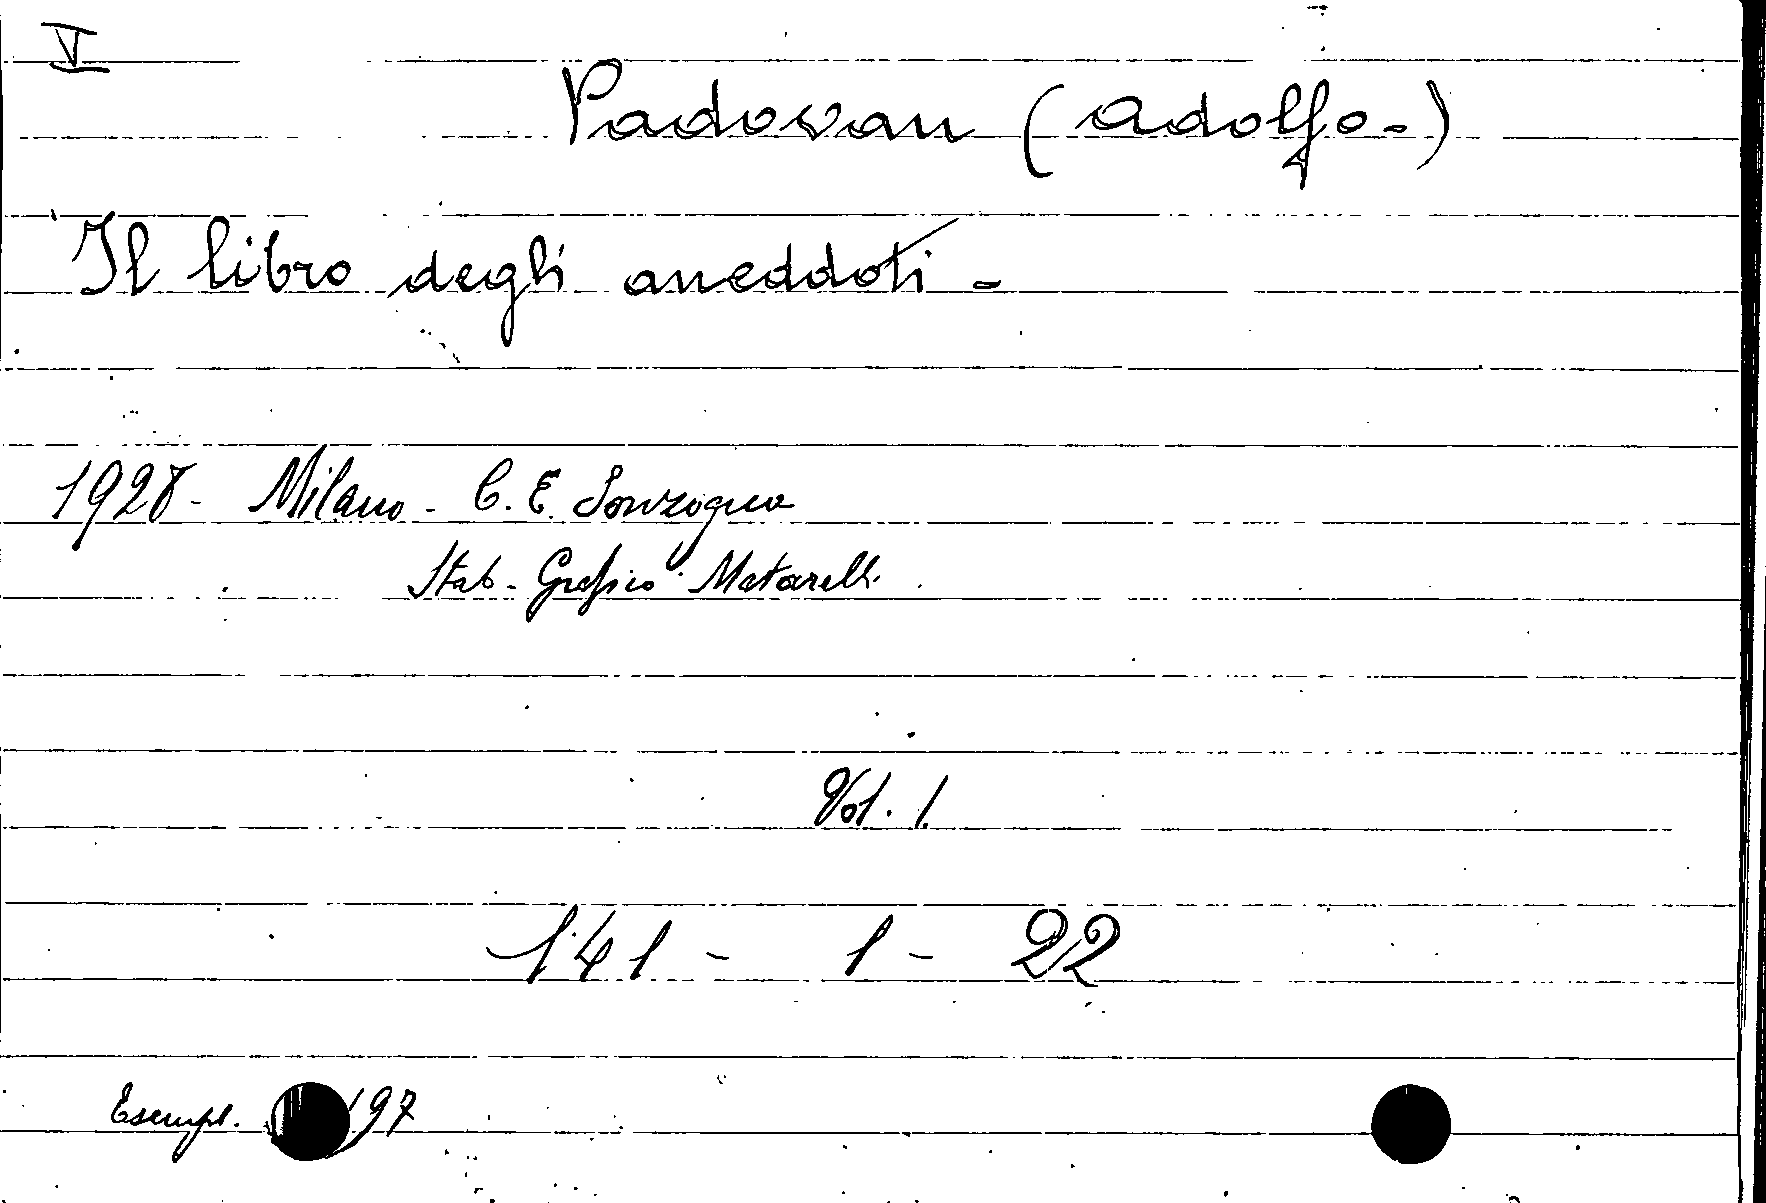 V
Padovan (Adolfo-)
Il libro degli aneddoti -
1928 - Milano - C. E. Sonzogno
Stab. Grafico Matarelli.
Vol. 1.
141 - 1 - 22
Esempl. 197